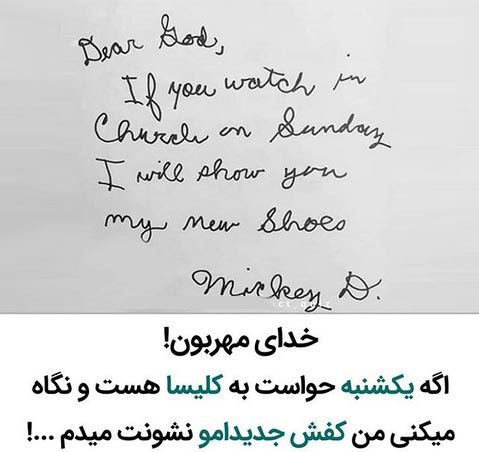 Dear God,
If you watch in
Church on Sunday
I will show you
my new Shoes
Mickey D.
خدای مهربون!
اگه یکشنبه حواست به کلیسا هست و نگاه
میکنی من کفش جدیدامو نشونت میدم ...!